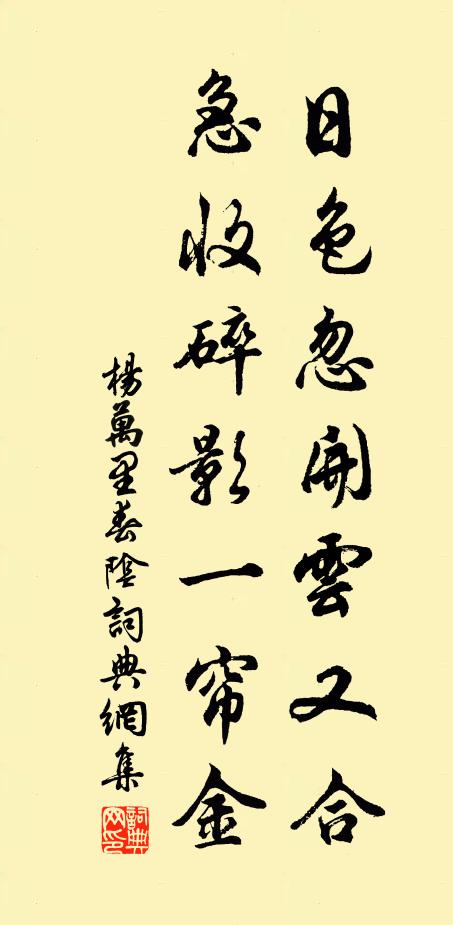 日色忽開雲又合
急收碎影一帘金
楊萬里春陰詞典網集
詞典網印